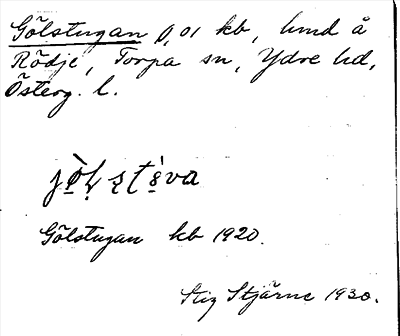 Gölstugan 0,01 kb, hmd å
Rödje, Torpa sn, Ydre hd,
Österg. l.
Gölstugan kb 1920.
Stig Stjärne 1930.